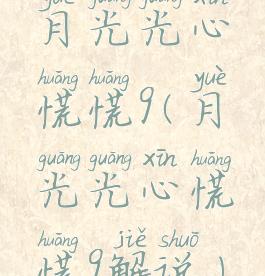 yuè guāng guāng xīn
月光光心
huāng huāng yuè
慌慌9(月
guāng guāng xīn huāng
光光心慌
huāng jiě shuō
慌9解说)